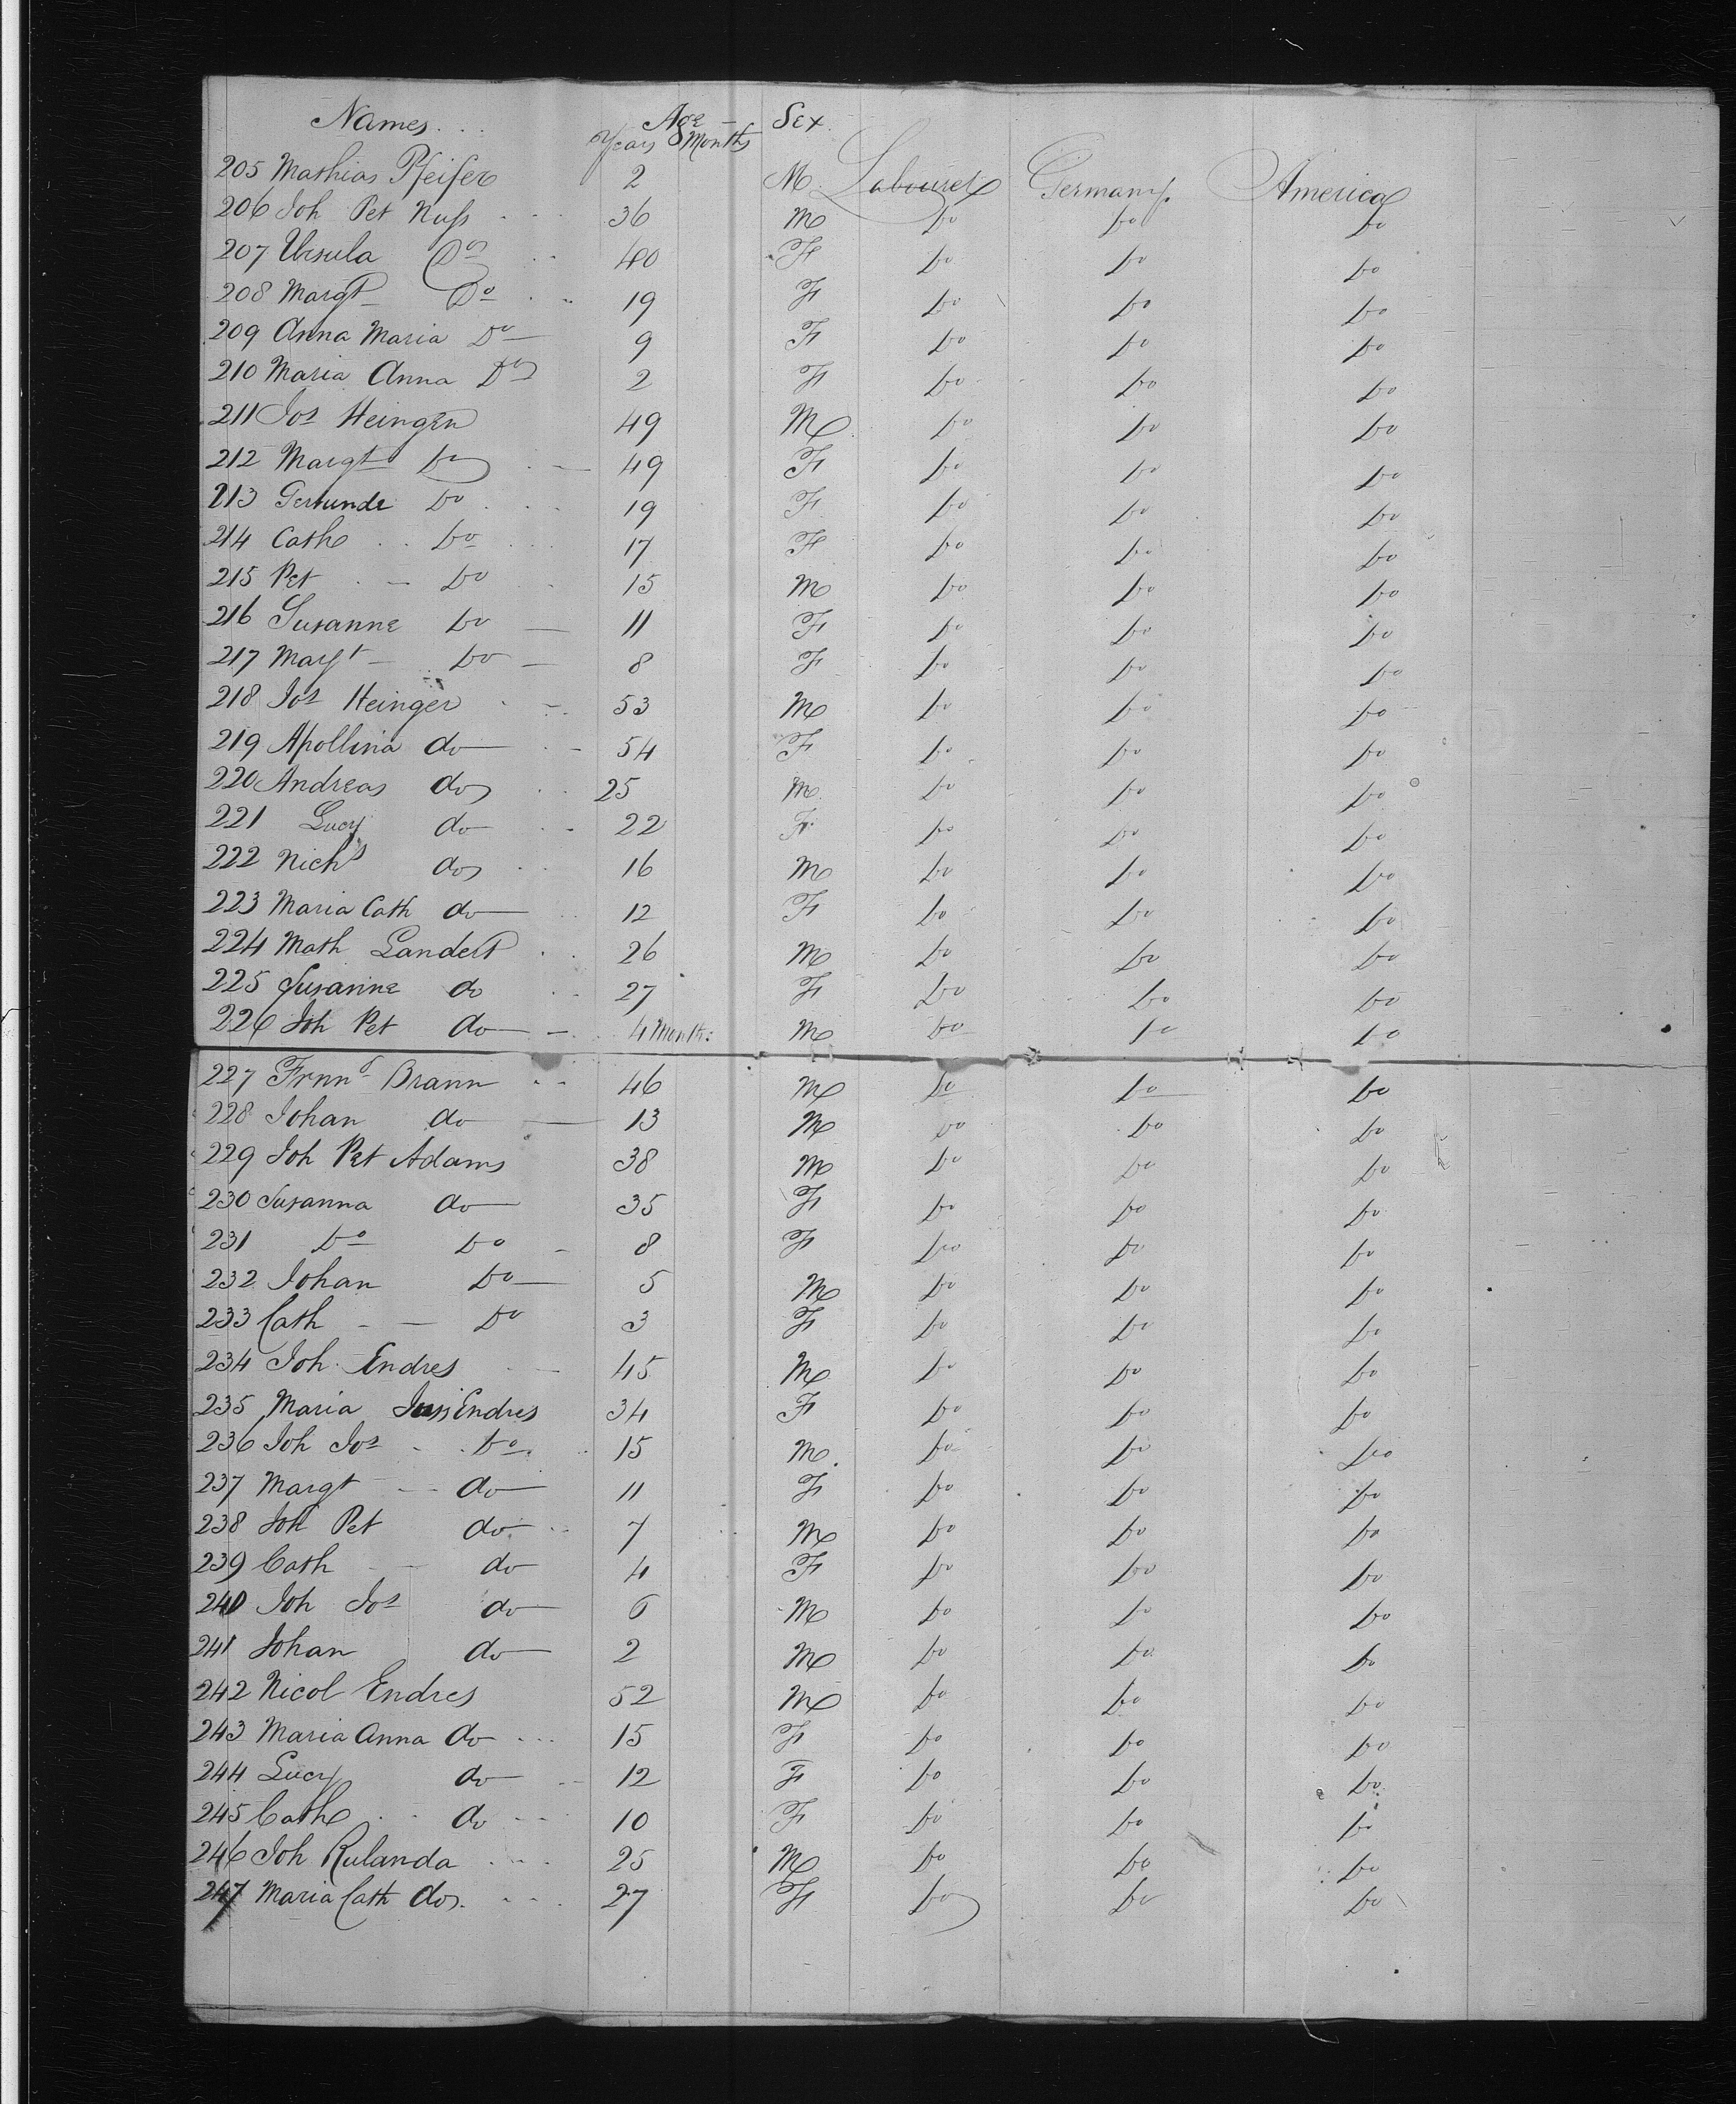 Names. Age Sex
Years Months
205 Mathias Pfeifer 2 M Labourer Germany America
206 Joh Pet Nuss 36 M Do Do Do
207 Ursula Do 40 F Do Do Do
208 Margt Do 19 F Do Do Do
209 Anna Maria Do 9 F Do Do Do
210 Maria Anna Do 2 F Do Do Do
211 Jos Heingen 49 M Do Do Do
212 Margt Do 49 F Do Do Do
213 Do 19 F Do Do Do
214 Cath Do 17 F Do Do Do
215 Pet Do 15 M Do Do Do
216 Susanne Do 11 F Do Do Do
217 Margt Do 8 F Do Do Do
218 Jos Heinger 53 M Do Do Do
219 Apollina do 54 F Do Do Do
220 Andreas do 25 M Do Do Do
221 Lucy do 22 F Do Do Do
222 Nichs do 16 M Do Do Do
223 Maria Cath do 12 F Do Do Do
224 Math Landert 26 M Do Do Do
225 Susanne do 27 F Do Do Do
226 Joh Pet do 4 Months M Do Do Do
227 Brann 46 M Do Do Do
228 Johan do 13 M Do Do Do
229 Joh Pet Adams 38 M Do Do Do
230 Susanna do 35 F Do Do Do
231 Do Do 8 F Do Do Do
232 Johan Do 5 M Do Do Do
233 Cath Do 3 F Do Do Do
234 Joh. Endres 45 M Do Do Do
235 Maria Endres 34 F Do Do Do
236 Joh Jos Do 15 M Do Do Do
237 Margt do 11 F Do Do Do
238 Joh Pet do 7 M Do Do Do
239 Cath do 4 F Do Do Do
240 Joh Jos do 6 M Do Do Do
241 Johan do 2 M Do Do Do
242 Nicol Endres 52 M Do Do Do
243 Maria Anna do 15 F Do Do Do
244 Lucy do 12 F Do Do Do
245 Cath do 10 F Do Do Do
246 Joh Rulanda 25 M Do Do Do
247 Maria Cath do 27 F Do Do Do